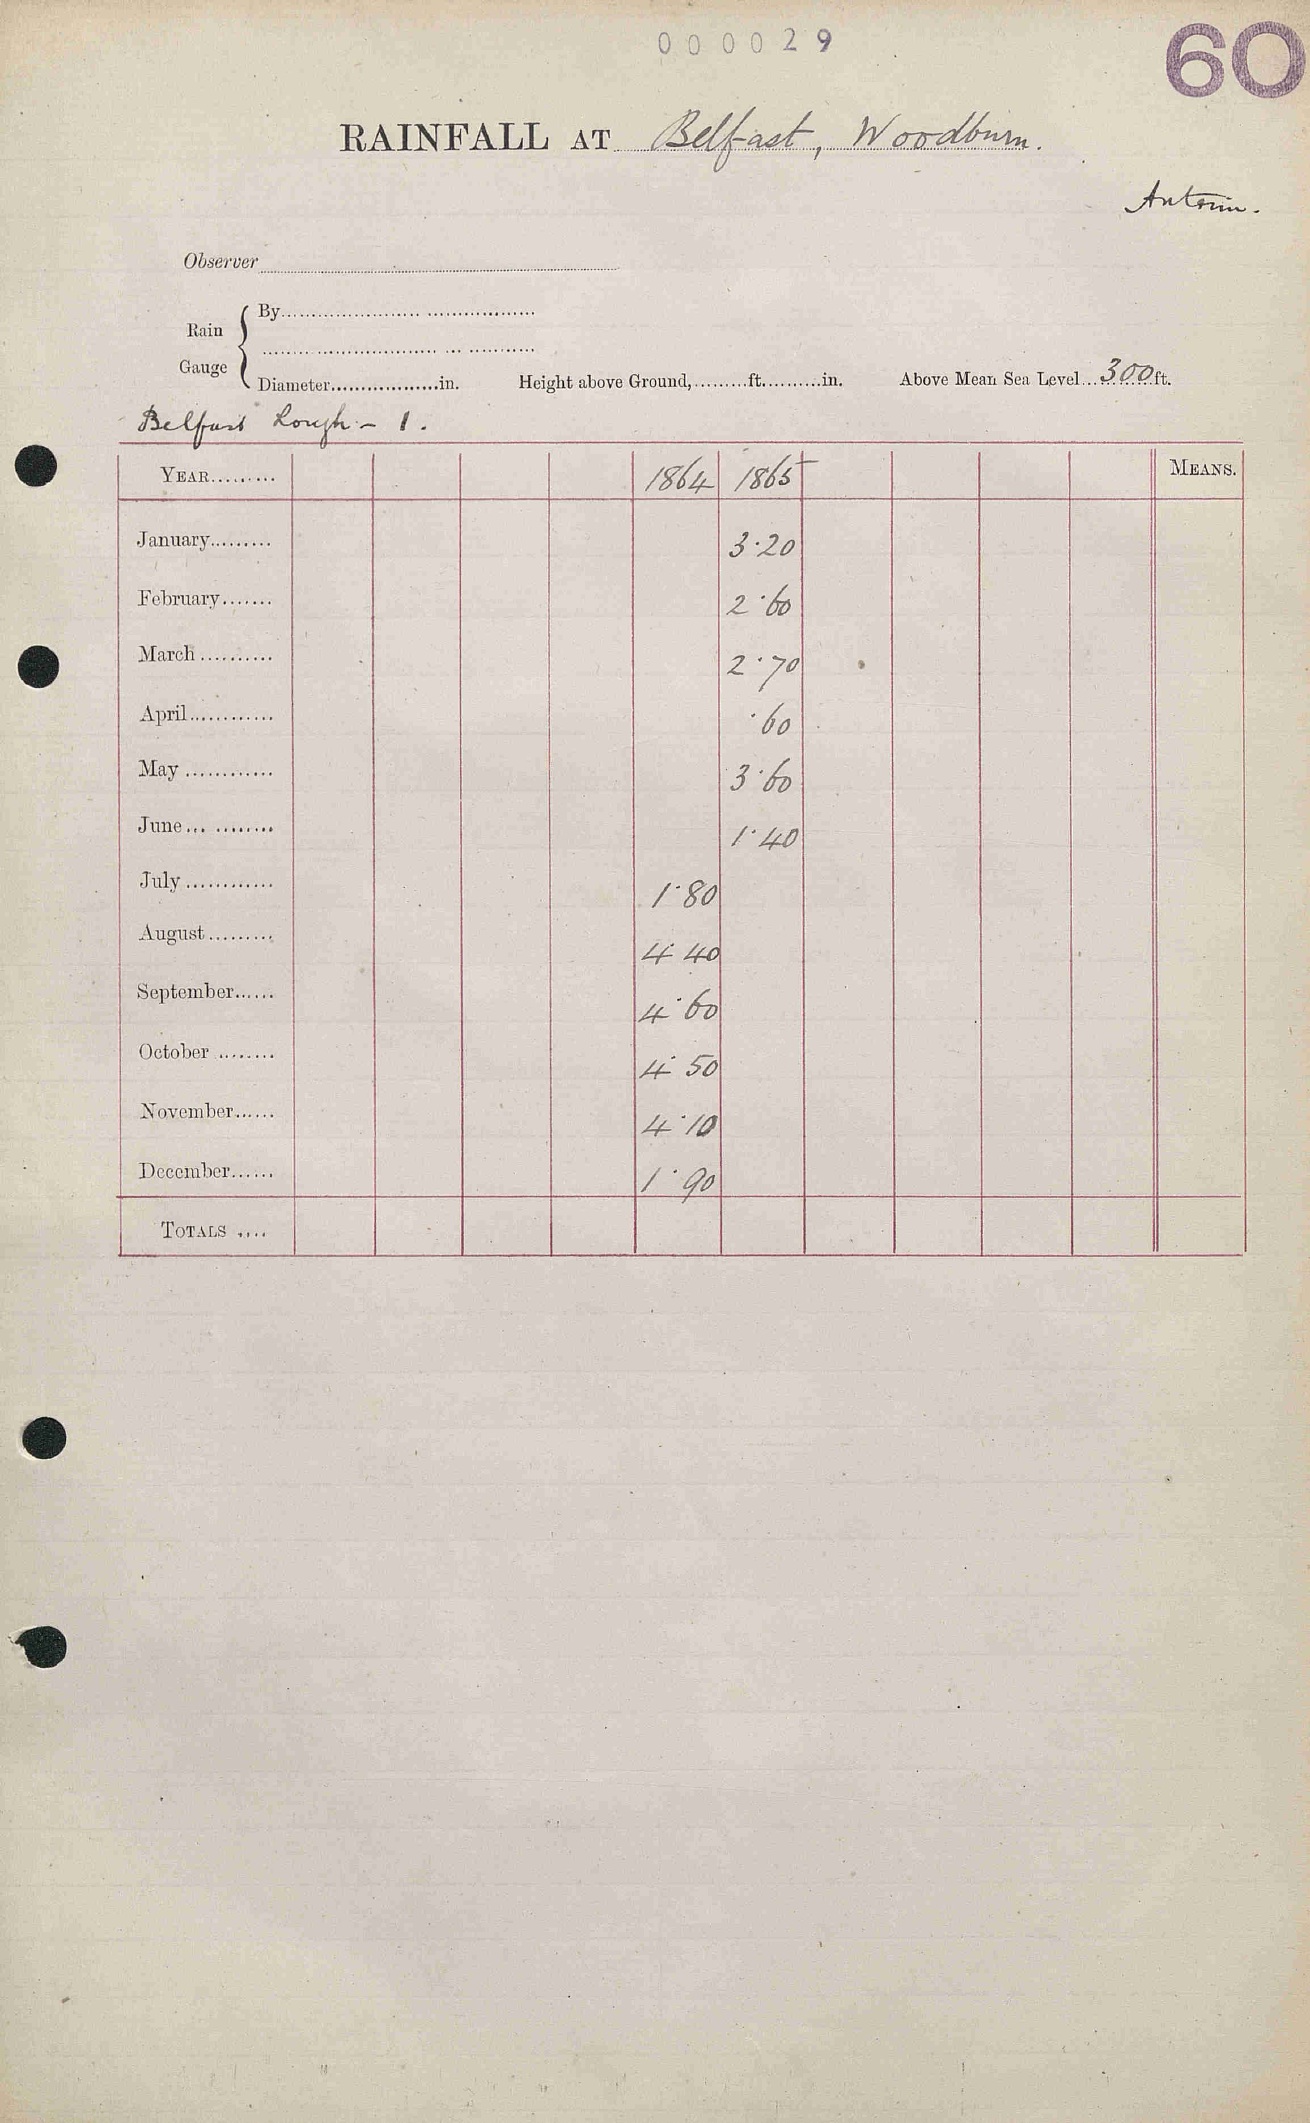 000029
60
RAINFALL AT Belfast, Woodburn.
Antrim.
Observer
Rain Gauge { By
Diameter..................in. Height above Ground,.........ft..........in. Above Mean Sea Level...300ft.
Belfast Lough - 1.
YEAR......... 1864 1865 MEANS.
January......... 3.20
February....... 2.60
March .......... 2.70
April............ .60
May ............ 3.60
June... ........ 1.40
July ............ 1.80
August......... 4 40
September...... 4.60
October ........ 4 50
November...... 4.10
December...... 1.90
TOTALS ....